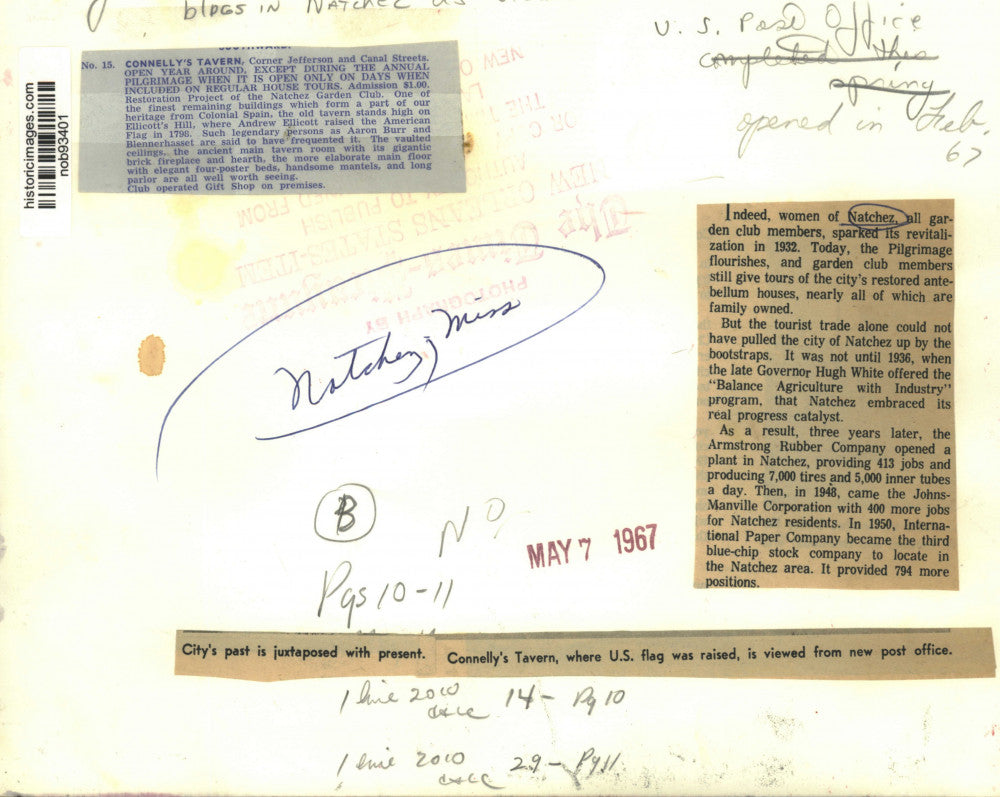 bldgs in Natchez
U.S. Post Office
completed this
spring
opened in Feb.
67
historicimages.com
nob93401
SOUTHWARD.
No. 15. CONNELLY'S TAVERN, Corner Jefferson and Canal Streets.
OPEN YEAR AROUND, EXCEPT DURING THE ANNUAL
PILGRIMAGE WHEN IT IS OPEN ONLY ON DAYS WHEN
INCLUDED ON REGULAR HOUSE TOURS. Admission $1.00.
Restoration Project of the Natchez Garden Club. One of
the finest remaining buildings which form a part of our
heritage from Colonial Spain, the old tavern stands high on
Ellicott's Hill, where Andrew Ellicott raised the American
Flag in 1798. Such legendary persons as Aaron Burr and
Blennerhasset are said to have frequented it. The vaulted
ceilings, the ancient main tavern room with its gigantic
brick fireplace and hearth, the more elaborate main floor
with elegant four-poster beds, handsome mantels, and long
parlor are all well worth seeing.
Club operated Gift Shop on premises.
PHOTOGRAPH BY
The Times-Picayune
NEW ORLEANS STATES-ITEM
Natchez, Miss
Indeed, women of Natchez, all gar-
den club members, sparked its revitali-
zation in 1932. Today, the Pilgrimage
flourishes, and garden club members
still give tours of the city's restored ante-
bellum houses, nearly all of which are
family owned.
But the tourist trade alone could not
have pulled the city of Natchez up by the
bootstraps. It was not until 1936, when
the late Governor Hugh White offered the
"Balance Agriculture with Industry"
program, that Natchez embraced its
real progress catalyst.
As a result, three years later, the
Armstrong Rubber Company opened a
plant in Natchez, providing 413 jobs and
producing 7,000 tires and 5,000 inner tubes
a day. Then, in 1948, came the Johns-
Manville Corporation with 400 more jobs
for Natchez residents. In 1950, Interna-
tional Paper Company became the third
blue-chip stock company to locate in
the Natchez area. It provided 794 more
positions.
B
NO
MAY 7 1967
Pgs 10-11
City's past is juxtaposed with present.
Connelly's Tavern, where U.S. flag was raised, is viewed from new post office.
1 line 2010 14 - Pg 10
1 line 2010 29 - Pg 11